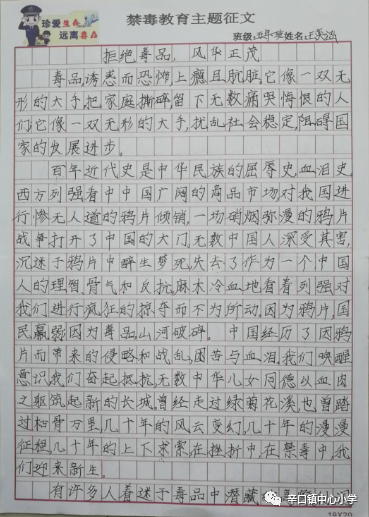 珍爱生命
远离毒品
禁毒教育主题征文
班级:五年班姓名:王
拒绝毒品,风华正茂
毒品,诱惑而恐怖,上瘾且肮脏,它像一双无
形的大手,把家庭撕碎,留下无数痛哭悔恨的人
们,它像一双无形的大手,扰乱社会稳定,阻碍国
家的发展进步。
百年近代史是中华民族的屈辱史,血泪史,
西方列强看中中国广阔的商品市场,对我国进
行惨无人道的鸦片倾销,一场硝烟弥漫的鸦片
战争打开了中国的大门,无数中国人深受其害,
沉迷于鸦片中醉生梦死,失去了作为一个中国
人的理智,骨气和反抗,麻木冷血地看着列强对
我们进行疯狂的掠夺而不为所动,因为鸦片,国
民羸弱,因为毒品,山河破碎。中国经历了因鸦
片而带来的侵略和战乱,困苦与血泪,我们唤醒
意识,我们奋起抵抗,无数中华儿女同德以血肉
之躯筑起新的长城,曾经走过绿菊花溪,也曾踏
过枯骨万里,几十年的风云变幻,几十年的漫漫
征程,几十年的上下求索,在挫折中,在禁毒中,我
们迎来新生。
有许多人着迷于毒品中潜藏
辛口镇中心小学
19X20